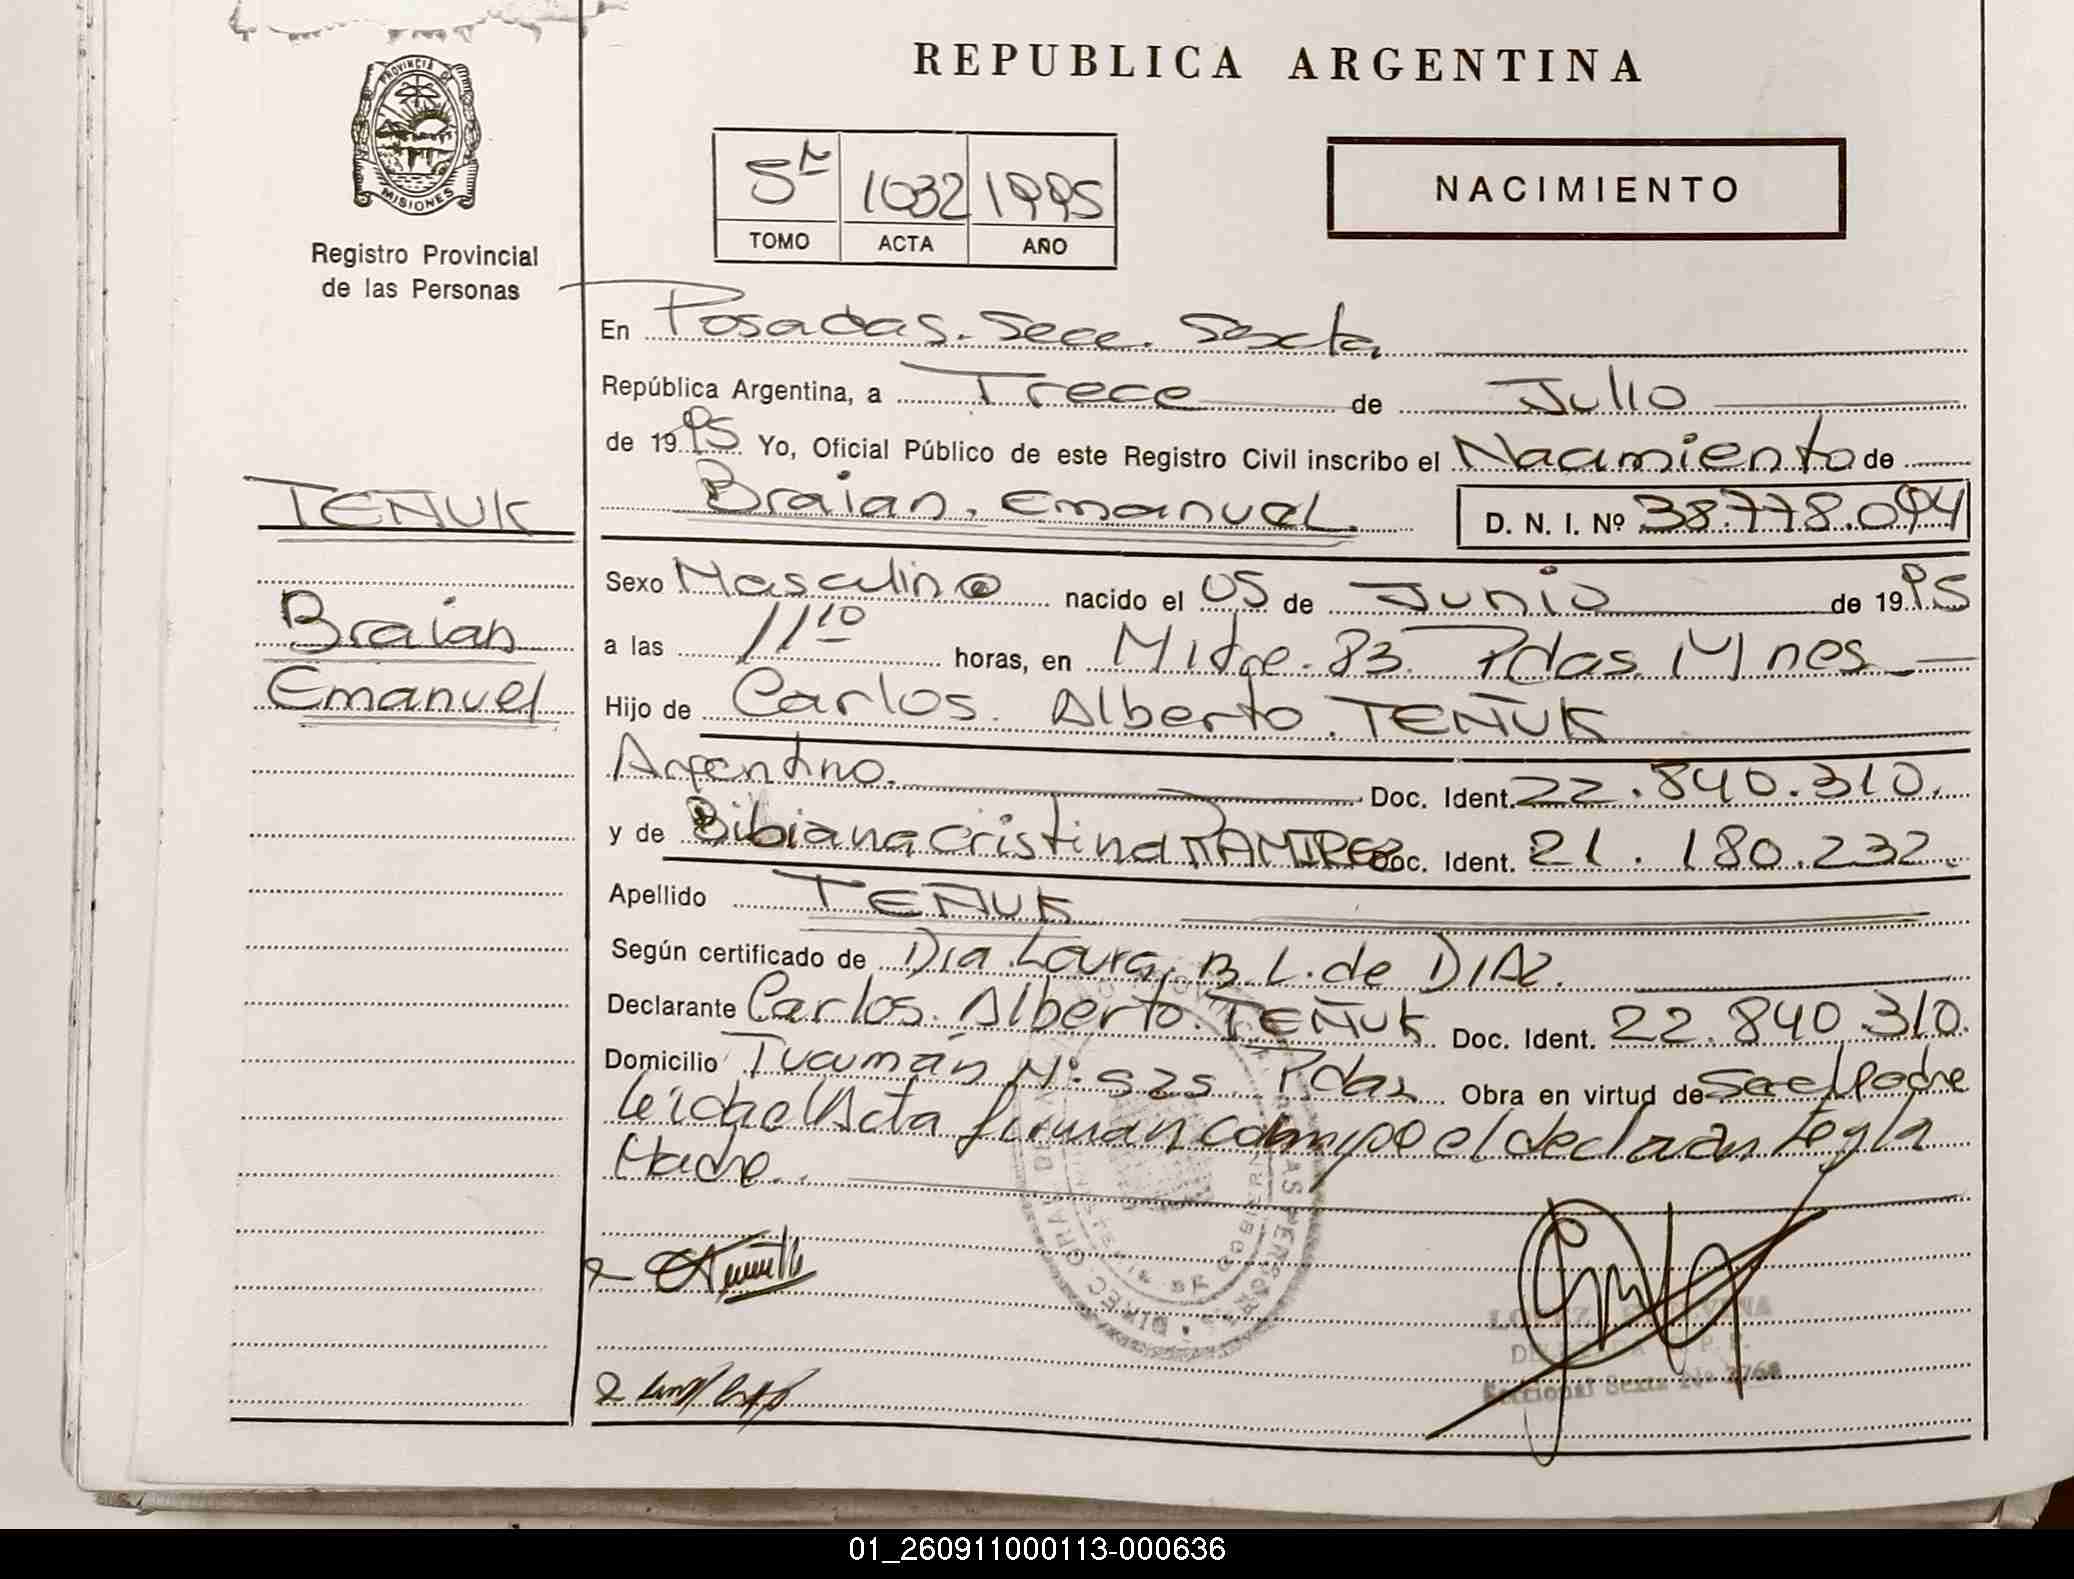 REPUBLICA ARGENTINA
PROVINCIA DE
MISIONES
Registro Provincial
de las Personas
5º 1032 1995
TOMO ACTA AÑO
NACIMIENTO
En Posadas. Secc. Sexta
República Argentina, a Trece de Julio
de 1995 Yo, Oficial Público de este Registro Civil inscribo el Nacimiento de
Braian. Emanuel. D. N. I. Nº 38.778.094
TEÑUK
Braian
Emanuel
Sexo Masculino nacido el 05 de Junio de 1995
a las 11 10 horas, en Mitre. 83. Pdas. Mnes
Hijo de Carlos. Alberto. TEÑUK
Argentino. Doc. Ident. 22.840.310.
y de Bibiana Cristina RAMIREZ Doc. Ident. 21.180.232.
Apellido TEÑUK
Según certificado de Dra. Laura. B. L. de DIAZ.
Declarante Carlos. Alberto. TEÑUK Doc. Ident. 22.840.310.
Domicilio Tucumán Nº 525 Pdas Obra en virtud de Ser el Padre
leida el Acta firman conmigo el declarante y la
Madre.
Seccional Sexta Nº 2768
01_260911000113-000636